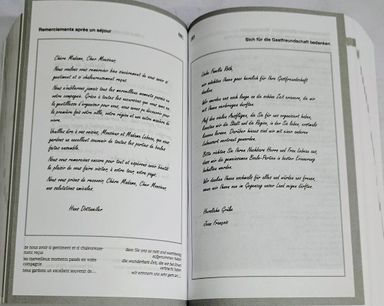 Remerciements après un séjour
Chère Madame, Cher Monsieur,
Nous voulons vous remercier bien sincèrement de nous avoir si
gentiment et si chaleureusement reçus.
Nous n'oublierons jamais tous les merveilleux moments passés en
votre compagnie. Grâce à toutes les excursions que vous avez eu
la gentillesse d'organiser pour nous, nous avons pu découvrir pour
la première fois votre ville, votre région et votre mode
de vie.
Veuillez dire à vos voisins, Monsieur et Madame Lebeau, que nous
gardons un excellent souvenir de toutes les parties de boules
faites ensemble.
Nous vous remercions encore pour tout et espérons avoir bientôt
le plaisir de vous faire visiter, à votre tour, notre pays.
Nous vous prions de recevoir, Chère Madame, Cher Monsieur,
nos salutations amicales.
Hans Dettweiler
de nous avoir si gentiment et si chaleureuse-
ment reçus
les merveilleux moments passés en votre
compagnie
nous gardons un excellent souvenir de...
dass Sie uns so nett und warmherzig
aufgenommen haben
die wunderbare Zeit, die wir bei Ihnen
verbracht haben
wir erinnern uns sehr gern an...
Sich für die Gastfreundschaft bedanken
Liebe Familie Roth,
wir möchten Ihnen ganz herzlich für Ihre Gastfreundschaft
danken.
Wir werden uns noch lange an die schöne Zeit erinnern, die wir
mit Ihnen verbringen durften.
Auf den vielen Ausflügen, die Sie für uns organisiert haben,
konnten wir die Stadt und die Region, in der Sie leben, erstmals
kennen lernen. Darüber hinaus sind wir mit einer anderen
Lebensart vertraut geworden.
Bitte richten Sie Ihren Nachbarn Herrn und Frau Lebeau aus,
dass wir die gemeinsamen Boule-Partien in bester Erinnerung
behalten werden.
Wir danken Ihnen nochmals für alles und würden uns freuen,
wenn wir Ihnen nun im Gegenzug unser Land zeigen dürften.
Herzliche Grüße
Jean François